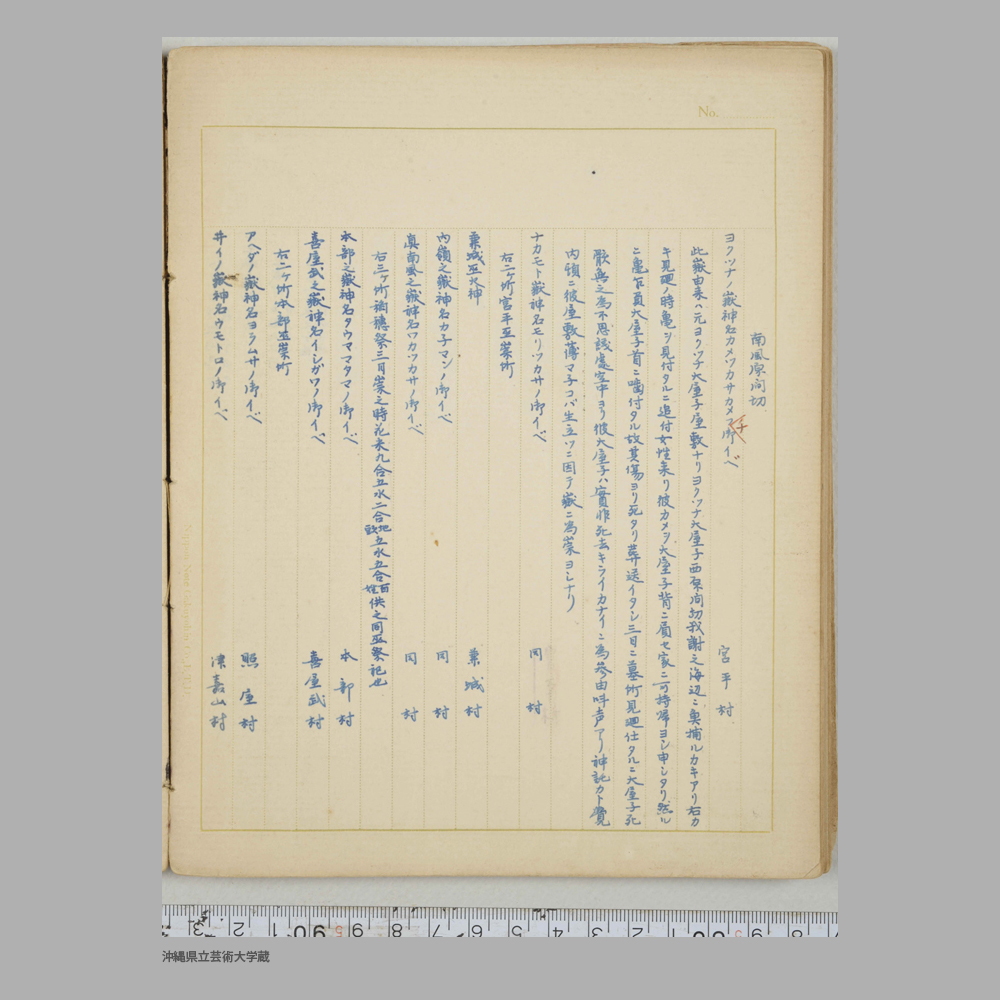 No.
南風原間切
ヨクツナノ嶽神名カメツカサカメマ御イベ 宮平村
チ
此嶽由来ハ元ヨクツナ大屋子屋敷ナリヨクツナ大屋子西原間切我謝之海辺ニ奥捕ルカキアリ右カ
キ見廻ノ時亀ヲ見付タルニ追付女性来リ彼カメヲ大屋子背ニ負セ家ニ可持帰ヨシ申シタリ然ル
ニ亀首大屋子首ニ噛付タル故其傷ヨリ死タリ葬送イタシ三日ニ墓所見廻仕タルニ大屋子死
骸無之為不思議處空中ヨリ彼大屋子ハ實非死去キライカナイニ為參由呌声アリ神託カト覺
内頓ニ彼屋敷薄マ子コバ生立ツニ因テ嶽ニ為崇ヨシナリ
ナカモト嶽神名モリツカサノ御イベ 同村
右二ヶ所宮平巫崇所
兼城巫火神 兼城村
内嶺之嶽神名カ子マンノ御イベ 同村
真南風之嶽神名ワカツカサノ御イベ 同村
右三ヶ所稲穂祭三日崇之時花米九合五水二合地頭五水五合百姓供之同巫祭祀也
本部之嶽神名タウママタマノ御イベ 本部村
喜屋武之嶽神名イシガワノ御イベ 喜屋武村
右二ヶ所本部巫崇所
アヘダノ嶽神名ヨラムサノ御イベ 照屋村
井リノ嶽神名ウモトロノ御イベ 津嘉山村
沖縄県立芸術大学蔵